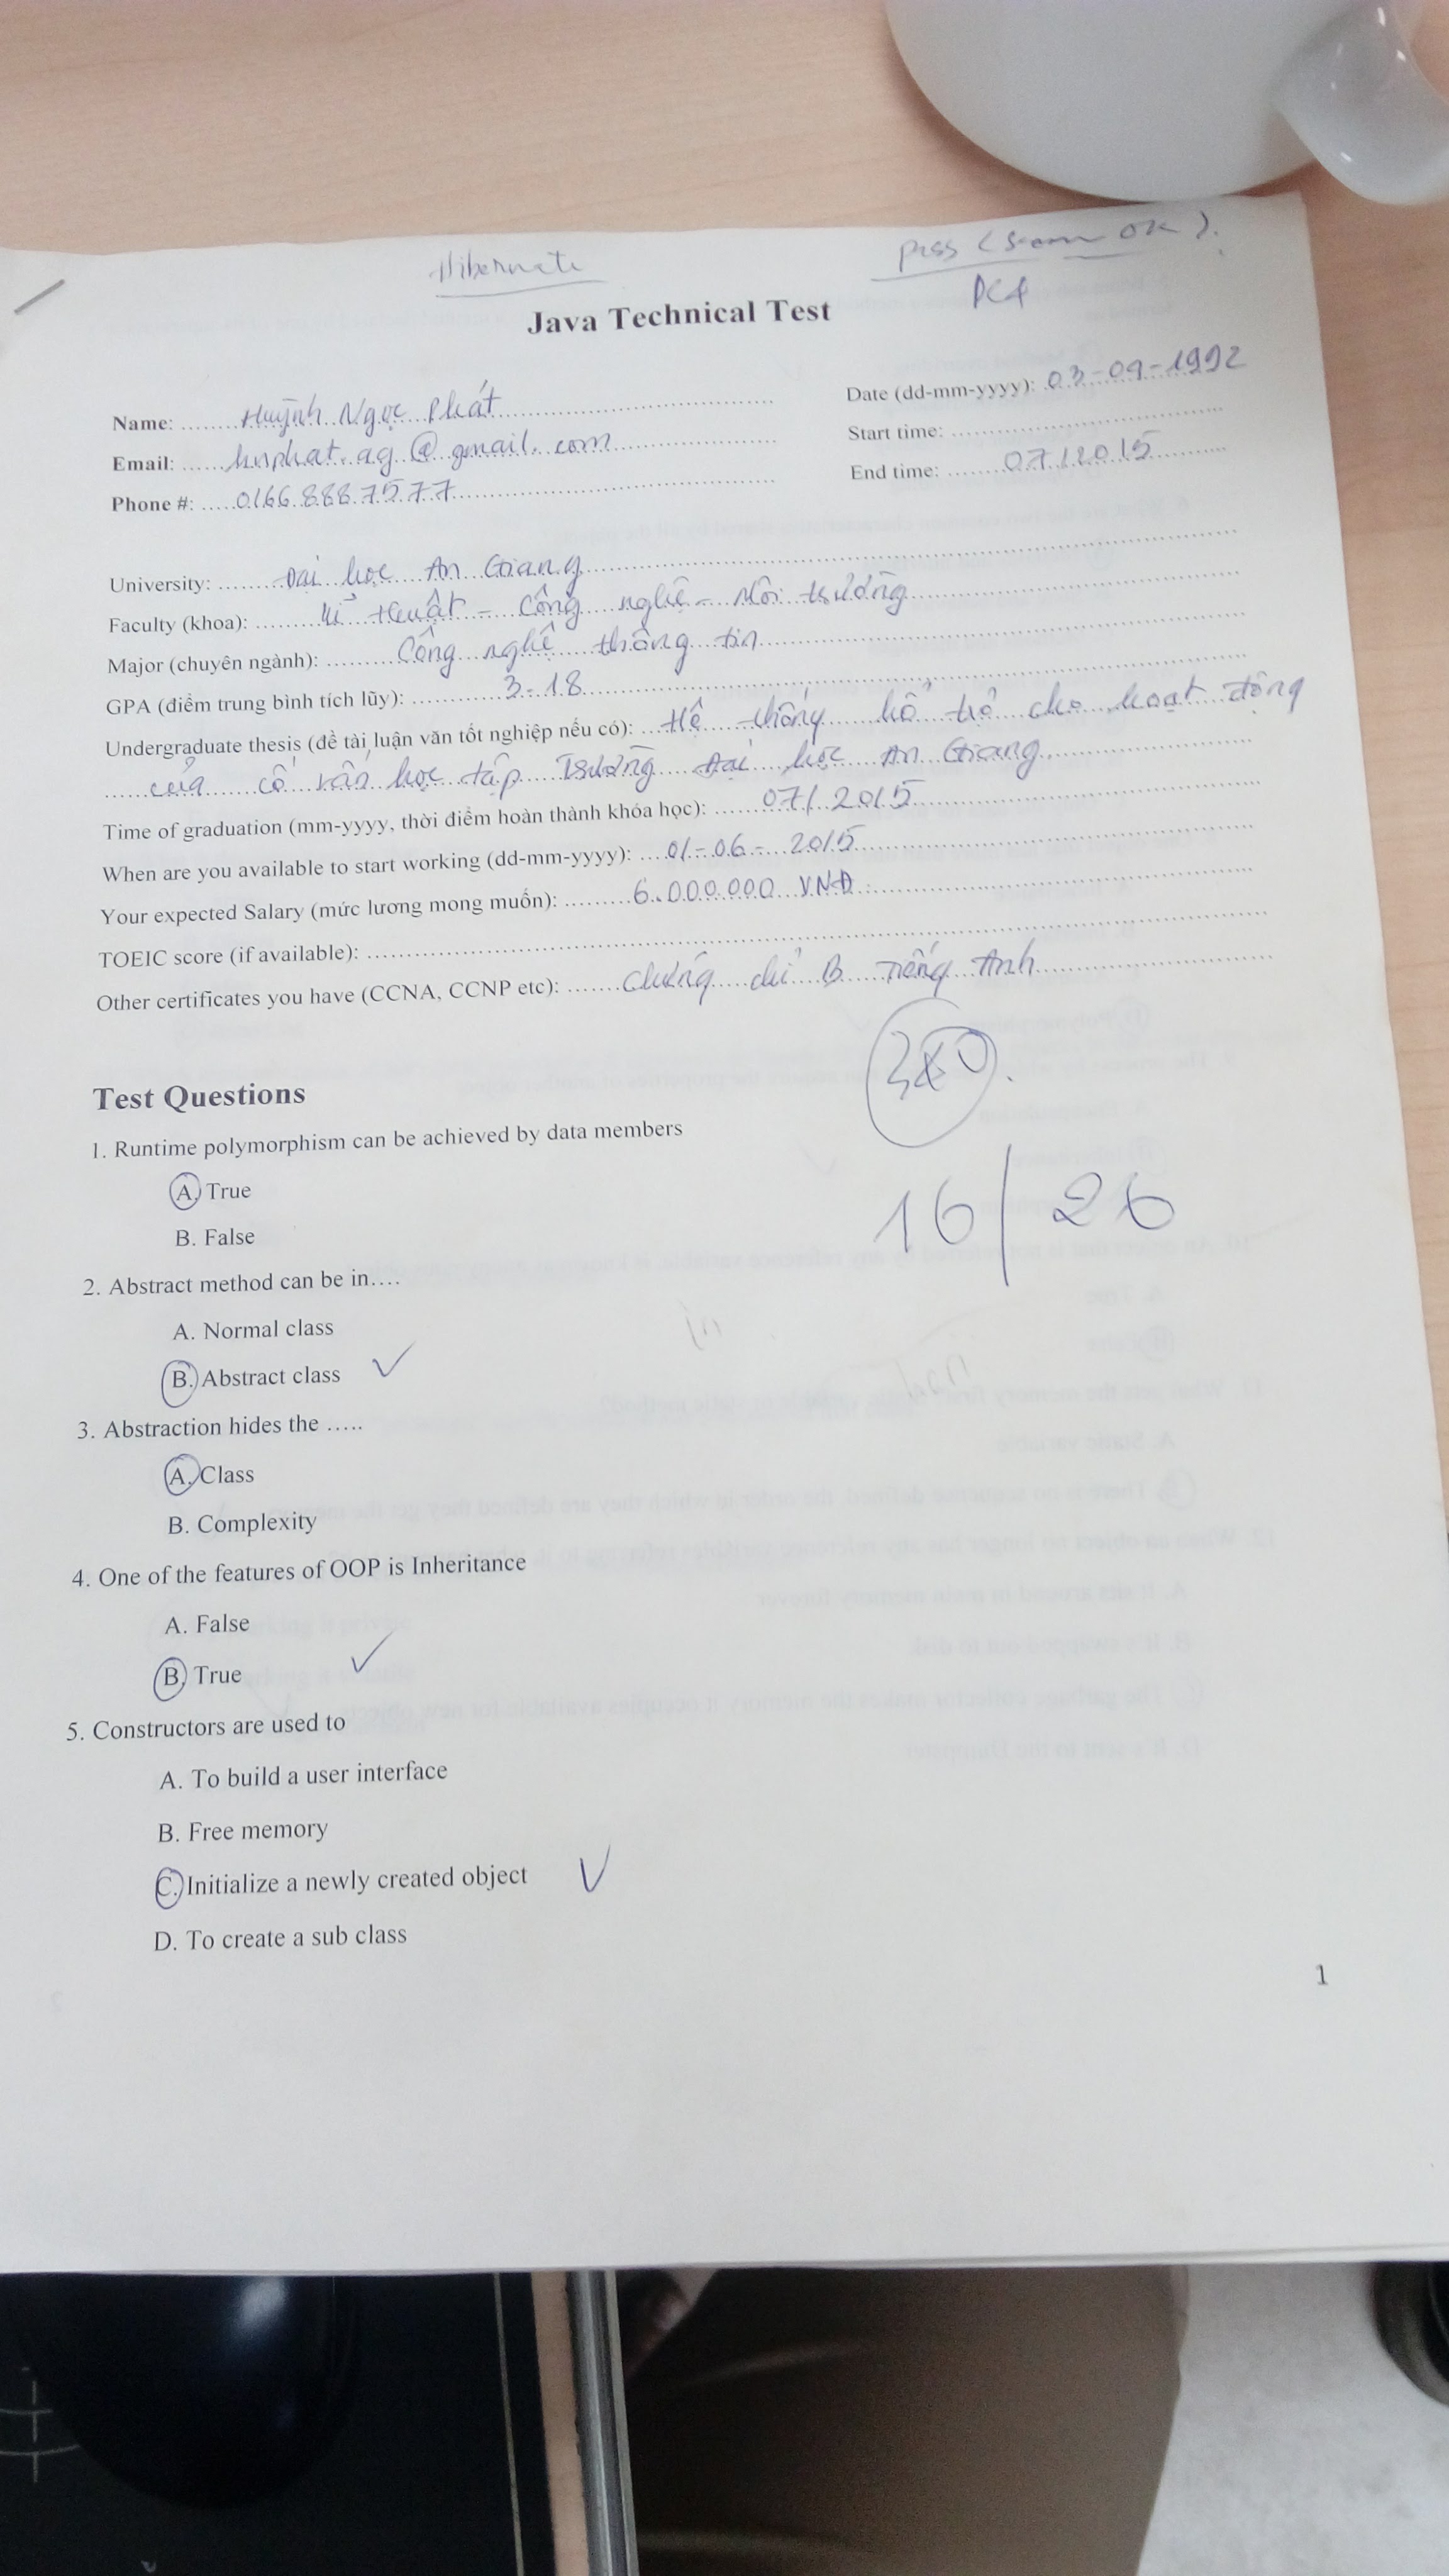 Hibernate
pass ( OK ).
Java Technical Test
Name: Huỳnh Ngọc Phát
Date (dd-mm-yyyy): 03-09-1992
Email: hnphat.ag@gmail.com
Start time:
Phone #: 0166.888.7577
End time: 07/2015
University: Đại học An Giang
Faculty (khoa): Kĩ thuật - Công nghệ - Môi trường
Major (chuyên ngành): Công nghệ thông tin
GPA (điểm trung bình tích lũy): 3.18
Undergraduate thesis (đề tài luận văn tốt nghiệp nếu có): Hệ thống hổ trợ cho hoạt động
của cố vấn học tập Trường Đại học An Giang
Time of graduation (mm-yyyy, thời điểm hoàn thành khóa học): 07/2015
When are you available to start working (dd-mm-yyyy): 01-06-2015
Your expected Salary (mức lương mong muốn): 6.000.000 VNĐ
TOEIC score (if available):
Other certificates you have (CCNA, CCNP etc): Chứng chỉ B Tiếng Anh
Test Questions
1. Runtime polymorphism can be achieved by data members
A. True
B. False
16/26
2. Abstract method can be in….
A. Normal class
B. Abstract class
3. Abstraction hides the …..
A. Class
B. Complexity
4. One of the features of OOP is Inheritance
A. False
B. True
5. Constructors are used to
A. To build a user interface
B. Free memory
C. Initialize a newly created object
D. To create a sub class
1